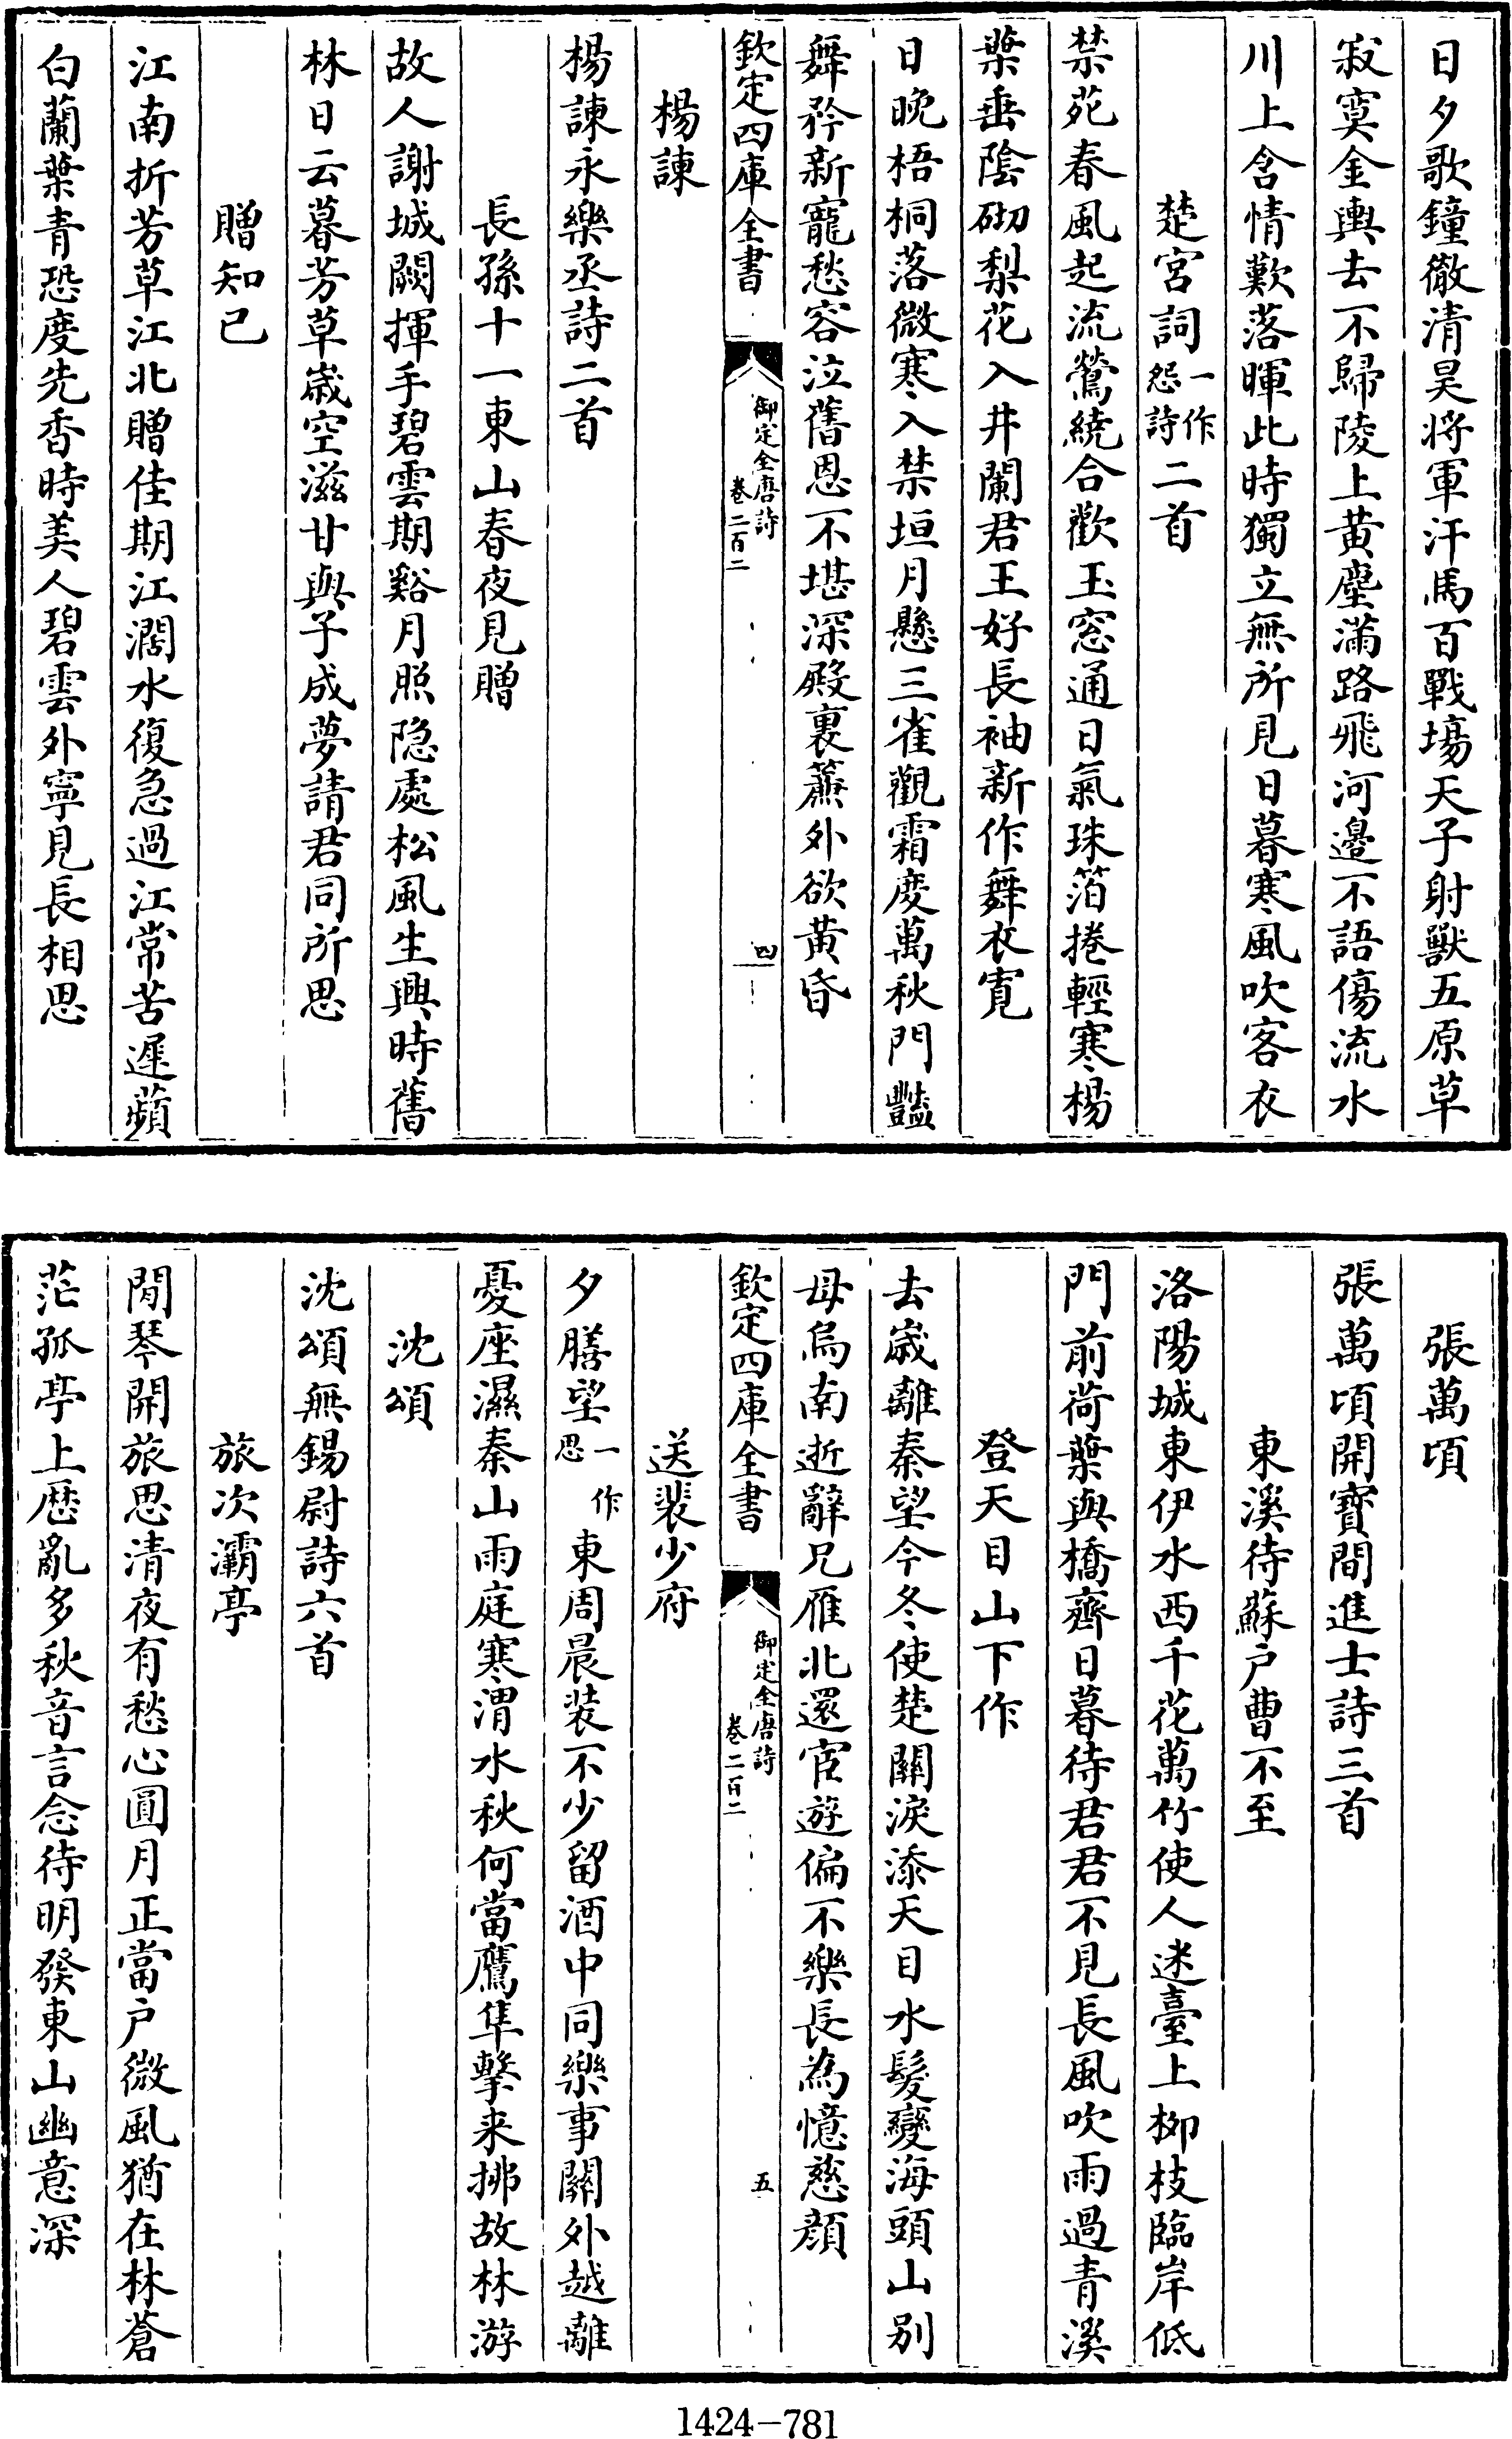 日夕歌鐘徹清昊將軍汗馬百戰塲天子射獸五原草
寂寞金輿去不歸陵上黄塵滿路飛河邉不語傷流水
川上含情歎落暉此時獨立無所見日暮寒風吹客衣
楚宮詞一作怨詩二首
禁苑春風起流鶯繞合歡玉窓通日氣珠箔捲輕寒楊
葉垂陰砌梨花入井闌君王好長袖新作舞衣寛
日晚梧桐落微寒入禁垣月懸三雀觀霜度萬秋門豔
舞矜新寵愁容泣舊恩不堪深殿裏簾外欲黄昏
欽定四庫全書
御定全唐詩
卷二百二
四
楊諫
楊諫永樂丞詩二首
長孫十一東山春夜見贈
故人謝城闕揮手碧雲期谿月照隐處松風生興時舊
林日云暮芳草歳空滋甘與子成夢請君同所思
贈知已
江南折芳草江北贈佳期江濶水復急過江常苦遲蘋
白蘭葉青恐度先香時美人碧雲外寧見長相思
張萬頃
張萬頃開寶間進士詩三首
東溪待蘇户曹不至
洛陽城東伊水西千花萬竹使人迷臺上柳枝臨岸低
門前荷葉與橋齊日暮待君君不見長風吹雨過青溪
登天目山下作
去歳離秦望今冬使楚關淚添天目水髮變海頭山别
母烏南逝辭兄雁北還宦遊偏不樂長為憶慈顔
欽定四庫全書
御定全唐詩
卷二百二
五
送裴少府
夕膳望一作思東周晨装不少留酒中同樂事關外越離
憂座濕秦山雨庭寒渭水秋何當鷹隼擊来拂故林游
沈頌
沈頌無錫尉詩六首
旅次灞亭
閒琴開旅思清夜有愁心圓月正當户微風猶在林蒼
茫孤亭上歴亂多秋音言念待明發東山幽意深
1424-781